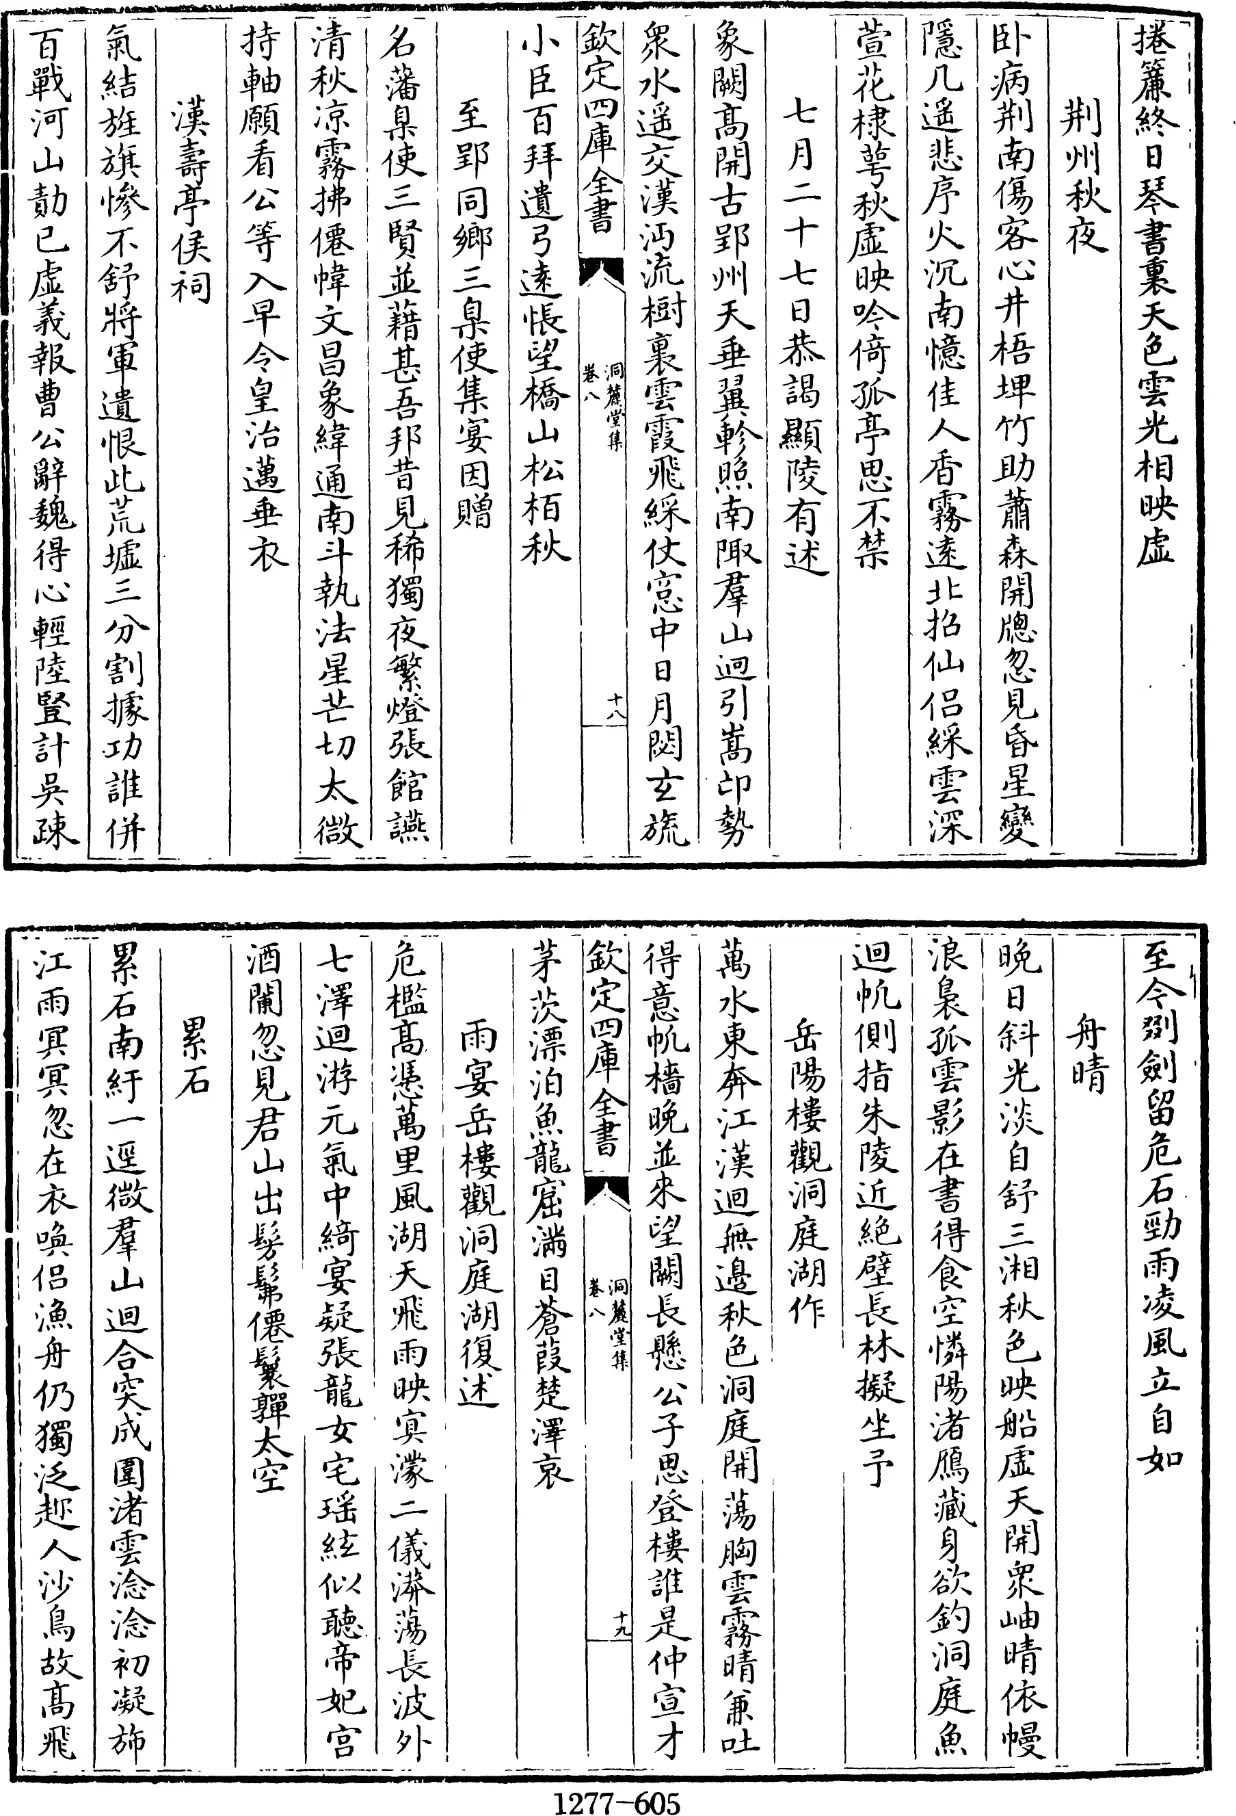 捲簾終日琴書裏天色雲光相映虛
荆州秋夜
卧病荆南傷客心井梧埤竹助蕭森開牕忽見昏星變
隱几遥悲序火沉南憶佳人香霧遠北招仙侣綵雲深
萱花棣萼秋虛映吟倚孤亭思不禁
七月二十七日恭謁顯陵有述
象闕髙開古郢州天垂翼軫照南陬羣山迴引嵩卭勢
衆水遥交漢沔流樹裏雲霞飛綵仗窓中日月閟玄旒
欽定四庫全書
洞麓堂集
卷八
十八
小臣百拜遺弓逺悵望橋山松栢秋
至郢同鄉三臬使集宴因贈
名藩臬使三賢並藉甚吾邦昔見稀獨夜繁燈張館讌
清秋凉霧拂僊幃文昌象緯通南斗執法星芒切太微
持軸願看公等入早令皇治邁垂衣
漢壽亭侯祠
氣結旌旗慘不舒將軍遺恨此荒墟三分割據功誰併
百戰河山勣已虛義報曹公辭魏得心輕陸豎計吳疎
至今刻劍留危石勁雨凌風立自如
舟晴
晚日斜光淡自舒三湘秋色映船虛天開衆岫晴依幔
浪裊孤雲影在書得食空憐陽渚鴈藏身欲釣洞庭魚
迴帆側指朱陵近絶壁長林擬坐予
岳陽樓觀洞庭湖作
萬水東奔江漢迴無邊秋色洞庭開蕩胸雲霧晴兼吐
得意帆檣晚並來望闕長懸公子思登樓誰是仲宣才
欽定四庫全書
洞麓堂集
卷八
十九
茅茨漂泊魚龍窟滿目蒼葭楚澤哀
雨宴岳樓觀洞庭湖復述
危檻髙憑萬里風湖天飛雨映㝠濛二儀漭蕩長波外
七澤迴游元氣中綺宴疑張龍女宅瑶絃似聽帝妃宫
酒闌忽見君山出髣髴僊鬟嚲太空
累石
累石南紆一逕微羣山迴合突成圍渚雲淰淰初凝斾
江雨冥冥忽在衣喚侣漁舟仍獨泛趂人沙鳥故髙飛
1277-605